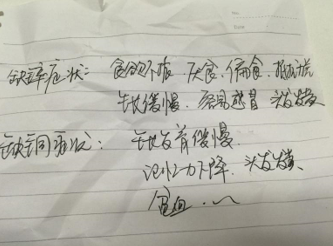 缺锌症状: 食欲不振 厌食、偏食、抵抗
生长缓慢、容易感冒 头发
缺铜症状: 生长发育缓慢、
记忆力下降、头发
贫血、